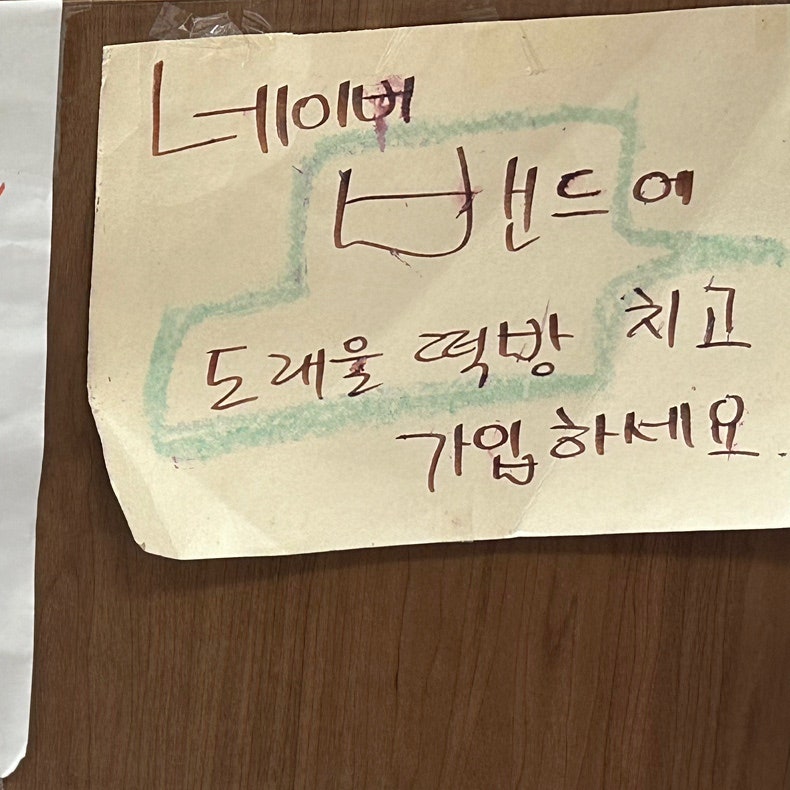 네이버
밴드에
도래울 떡방 치고
가입하세요.